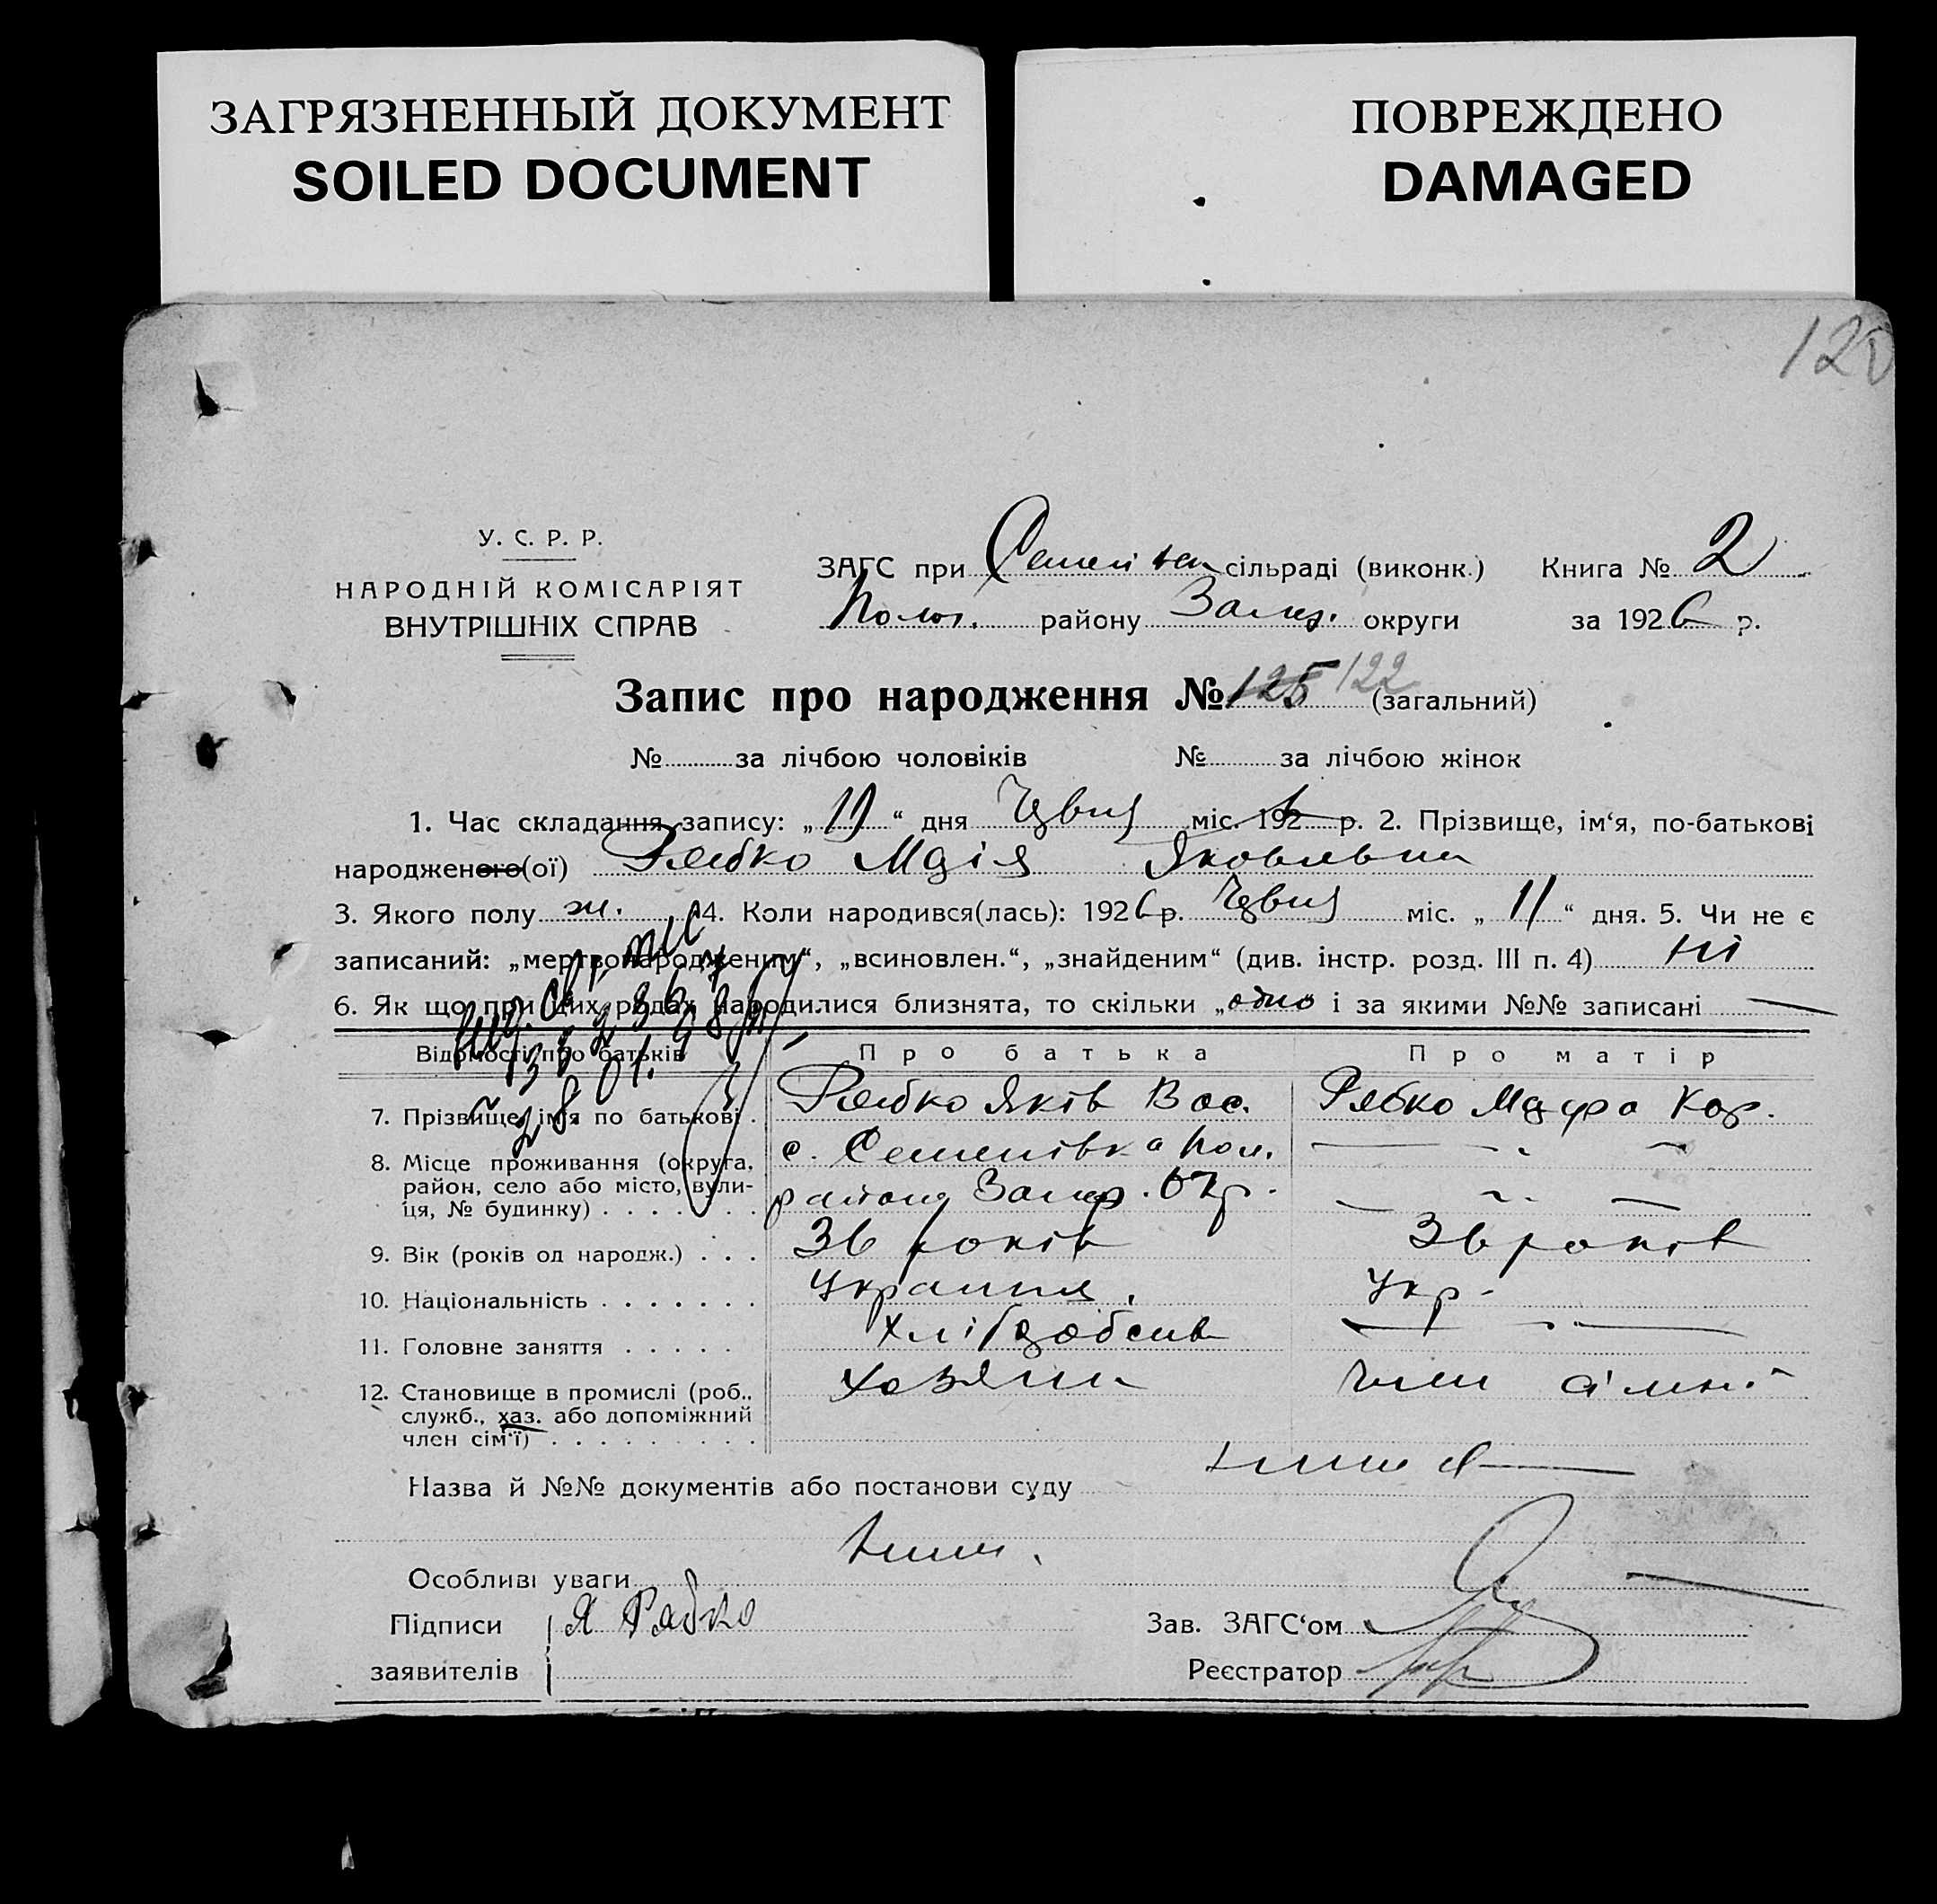 ЗАГРЯЗНЕННЫЙ ДОКУМЕНТ
SOILED DOCUMENT
ПОВРЕЖДЕНО
DAMAGED
120
У. С. Р. Р.
НАРОДНІЙ КОМІСАРІЯТ
ВНУТРІШНІХ СПРАВ
ЗАГС при сільраді (виконк.) Книга № 2
Полог. району Запор. округи за 1926 р.
Запис про народження № 125 122 (загальний)
№ за лічбою чоловіків № за лічбою жінок
1. Час складання запису: „19“ дня міс. 192 р. 2. Прізвище, ім‘я, по-батькові
народженого(ої) Рябко Марія Яковлевна
3. Якого полу ж. 4. Коли народився(лась): 1926 р. міс. „11“ дня. 5. Чи не є
записаний: „мертвонародженим“, „всиновлен.“, „знайденим“ (див. інстр. розд. III п. 4) ні
6. Як що при цих родах народилися близнята, то скільки „одно і за якими №№ записані —
Відомості про батьків Про батька Про матір
7. Прізвище, імя по батькові . Рябко Яків Вас. Рябко Марфа Кор.
8. Місце проживання (округа, с. Семенівка Пол.
район, село або місто, вули- району Запор. Окр.
ця, № будинку) . . . . . . .
9. Вік (років од народж.) . . . 36 років 36 років
10. Національність . . . . . . . Українця. Укр.
11. Головне заняття . . . . . хлібороб
12. Становище в промислі (роб., хозяин член сімьі
служб., хаз. або допоміжний
член сім‘ї) . . . . . . . . .
Назва й №№ документів або постанови суду
Особливі уваги
Підписи Я Рябко Зав. ЗАГС‘ом
заявителів Реєстратор